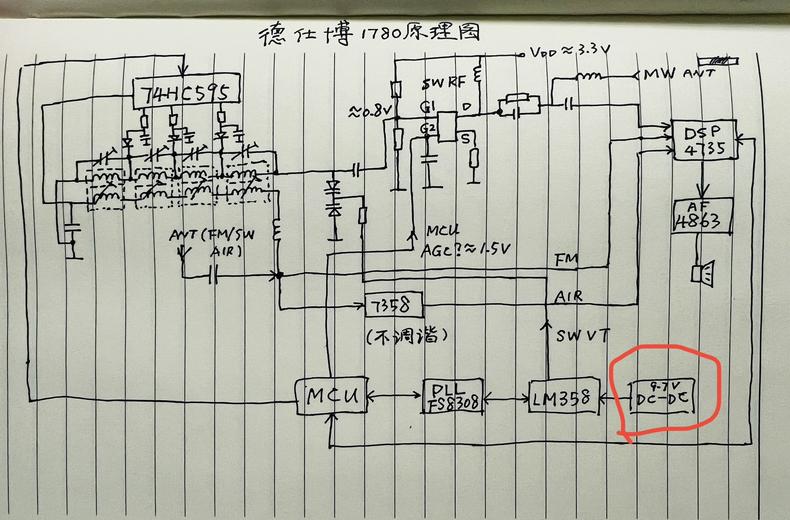 德仕博1780原理图
VDD≈3.3V
SWRF
MW ANT
74HC595
≈0.8V
G1
D
G2
S
DSP
4735
AF
4863
ANT(FM/SW
AIR)
MCU
AGC?≈1.5V
FM
7358
AIR
(不调谐)
SWVT
MCU
PLL
FS8308
LM358
DC-DC